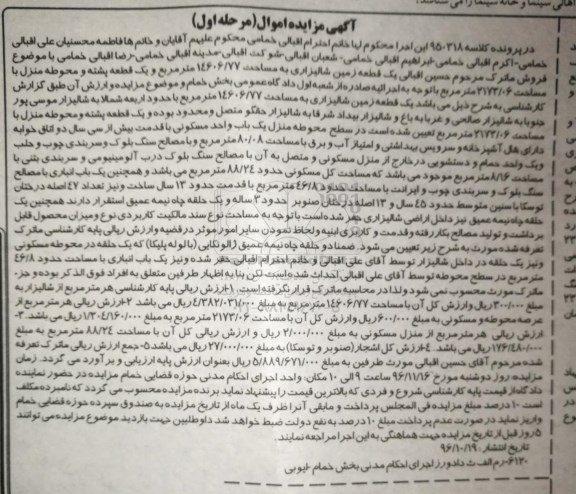 اهالی سینما و خانه سینما را می شناسد.
آگهی مزایده اموال (مرحله اول)
در پرونده کلاسه ۹۵۰۳۱۸ این اجرا محکوم لها خانم احترام اقبالی خمامی محکوم علیهم آقایان و خانم ها فاطمه محسنیان علی اقبالی
خمامی-اکرم اقبالی خمامی-ابراهیم اقبالی خمامی- شعبان اقبالی-شوکت اقبالی-مدینه اقبالی خمامی-رضا اقبالی خمامی با موضوع
فروش ماترک مرحوم حسین اقبالی یک قطعه زمین شالیزاری به مساحت ۱۴۶۰۶/۷۷ متر مربع و یک قطعه پشته و محوطه منزل با
مساحت ۲۱۷۳/۰۶ متر مربع با توجه به اجرائیه صادره از شعبه اول دادگاه عمومی بخش خمام و موضوع مزایده و ارزش آن طبق گزارش
کارشناسی به شرح ذیل می باشد یک قطعه زمین شالیزاری به مساحت ۱۴۶۰۶/۷۷ متر مربع با حدود اربعه شمالا به شالیزار موسی پور
جنوبا به شالیزار صالحی و غربا به باغ و شالیزار بیداد شرقا به شالیزار حقگو متصل و محدود بوده و یک قطعه پشته و محوطه منزل با
مساحت ۲۱۷۳/۰۶ متر مربع تعیین شده است در سطح محوطه منزل یک باب واحد مسکونی با قدمت بیش از سی سال دو اتاق خوابه
دارای هال آشپزخانه و سرویس بهداشتی و امتیاز آب و برق با مساحت ۸۰/۰۸ متر مربع و با مصالح سنگ بلوک و سربندی چوب و حلب
و یک واحد حمام و دستشویی در خارج از منزل مسکونی و متصل به آن با مصالح سنگ بلوک درب آلومینیومی و سربندی بتنی با
مساحت ۸/۱۶ متر مربع موجود می باشد که مساحت کل مسکونی حدود ۸۸/۲۴ متر مربع می باشد و همچنین یک باب انباری با مصالح
سنگ بلوک و سربندی چوب و ایرانت با مساحت حدود ۴۶/۸ متر مربع با قدمت حدود ۱۳ سال ساخت و نیز تعداد ۴۷ اصله درختان
توسکا با سنین متوسط حدود ۴۵ سال و ۱۳ اصله درختان صنوبر حدود ۳ ساله و یک حلقه چاه نیمه عمیق استقرار دارند همچنین یک
حلقه چاه نیمه عمیق نیز داخل اراضی شالیزاری حفر شده است با توجه به مساحت نوع سند مالکیت کاربردی نوع و میزان محصول قابل
برداشت و تولید مصالح بکار رفته و قدمت و کاربری ابنیه و لحاظ نمودن سایر امور موثر در قضیه و ارزش ریالی پایه کارشناسی ماترک
تعرفه شده مورث به شرح زیر تعیین می شود. ضمنا دو حلقه چاه نیمه عمیق ژالونکایی (با لوله پلیکا) که یک حلقه در محوطه مسکونی
و نیز یک حلقه در داخل شالیزار توسط آقای علی اقبالی و خانم احترام اقبالی حفر شده و نیز یک باب انباری با مساحت حدود ۴۶/۸
متر مربع در سطح محوطه توسط آقای علی اقبالی احداث شده است لکن بنا به اظهار طرفین متعلق به افراد فوق الذکر بوده و جزء
ماترک مورث محسوب نمی شود و لذا در محاسبه ماترک قرار نگرفته است. ۱-ارزش ریالی پایه کارشناسی هر متر مربع از شالیزار به
مبلغ ۳۰۰/۰۰۰ ریال و ارزش کل آن با مساحت ۱۴۶۰۶/۷۷ متر مربع به مبلغ ۴/۳۸۲/۰۳۱/۰۰۰ ریال می باشد ۲-ارزش ریالی هر متر مربع از
عرصه محوطه و مسکونی به مبلغ ۶۰۰/۰۰۰ ریال و ارزش کل آن با مساحت ۲۱۷۳/۰۶ متر مربع به مبلغ ۱/۳۰۴/۱۶۰/۰۰۰ ریال می باشد. ۳-
ارزش ریالی هر متر مربع از منزل مسکونی به مبلغ ۲/۰۰۰/۰۰۰ ریال و ارزش ریالی کل آن با مساحت ۸۸/۲۴ متر مربع به مبلغ
۱۷۶/۴۸۰/۰۰۰ ریال می باشد ۴-ارزش کل اشجار (صنوبر و توسکا) به مبلغ ۲۷/۰۰۰/۰۰۰ ریال می باشد ۵-جمع ارزش ریالی ماترک تعرفه
شده مرحوم آقای حسین اقبالی مورث طرفین به مبلغ ۵/۸۸۹/۶۷۱/۰۰۰ ریال بعنوان ارزش پایه ارزیابی و برآورد می گردد. زمان
مزایده: روز دوشنبه مورخ ۹۶/۱۱/۱۶ ساعت ۹ الی ۱۰ مکان: واحد اجرای احکام مدنی حوزه قضایی خمام مزایده در حضور نماینده
دادگاه از قیمت پایه کارشناسی شروع و فردی که بالاترین قیمت را پیشنهاد نماید برنده مزایده محسوب می گردد که نامبرده مکلف
است ۱۰ درصد مبلغ مزایده فی المجلس پرداخت و مابقی آنرا ظرف یک ماه از تاریخ مزایده به صندوق سپرده حوزه قضایی خمام
واریز نماید در صورت عدم پرداخت مبلغ ۱۰ درصد به نفع دولت ضبط خواهد شد داوطلبین جهت بازدید موضوع مزایده می توانند
۵ روز قبل از تاریخ مزایده جهت هماهنگی به این اجرا مراجعه نمایند.
تاریخ انتشار: ۹۶/۱۰/۱۹
۶۱۳۰-رم الف ث دادورز اجرای احکام مدنی بخش خمام -ایوبی